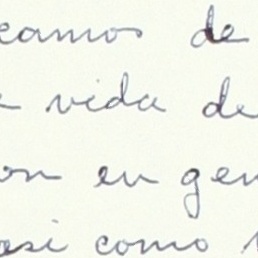 camos de
vida de
on en gen
asi como